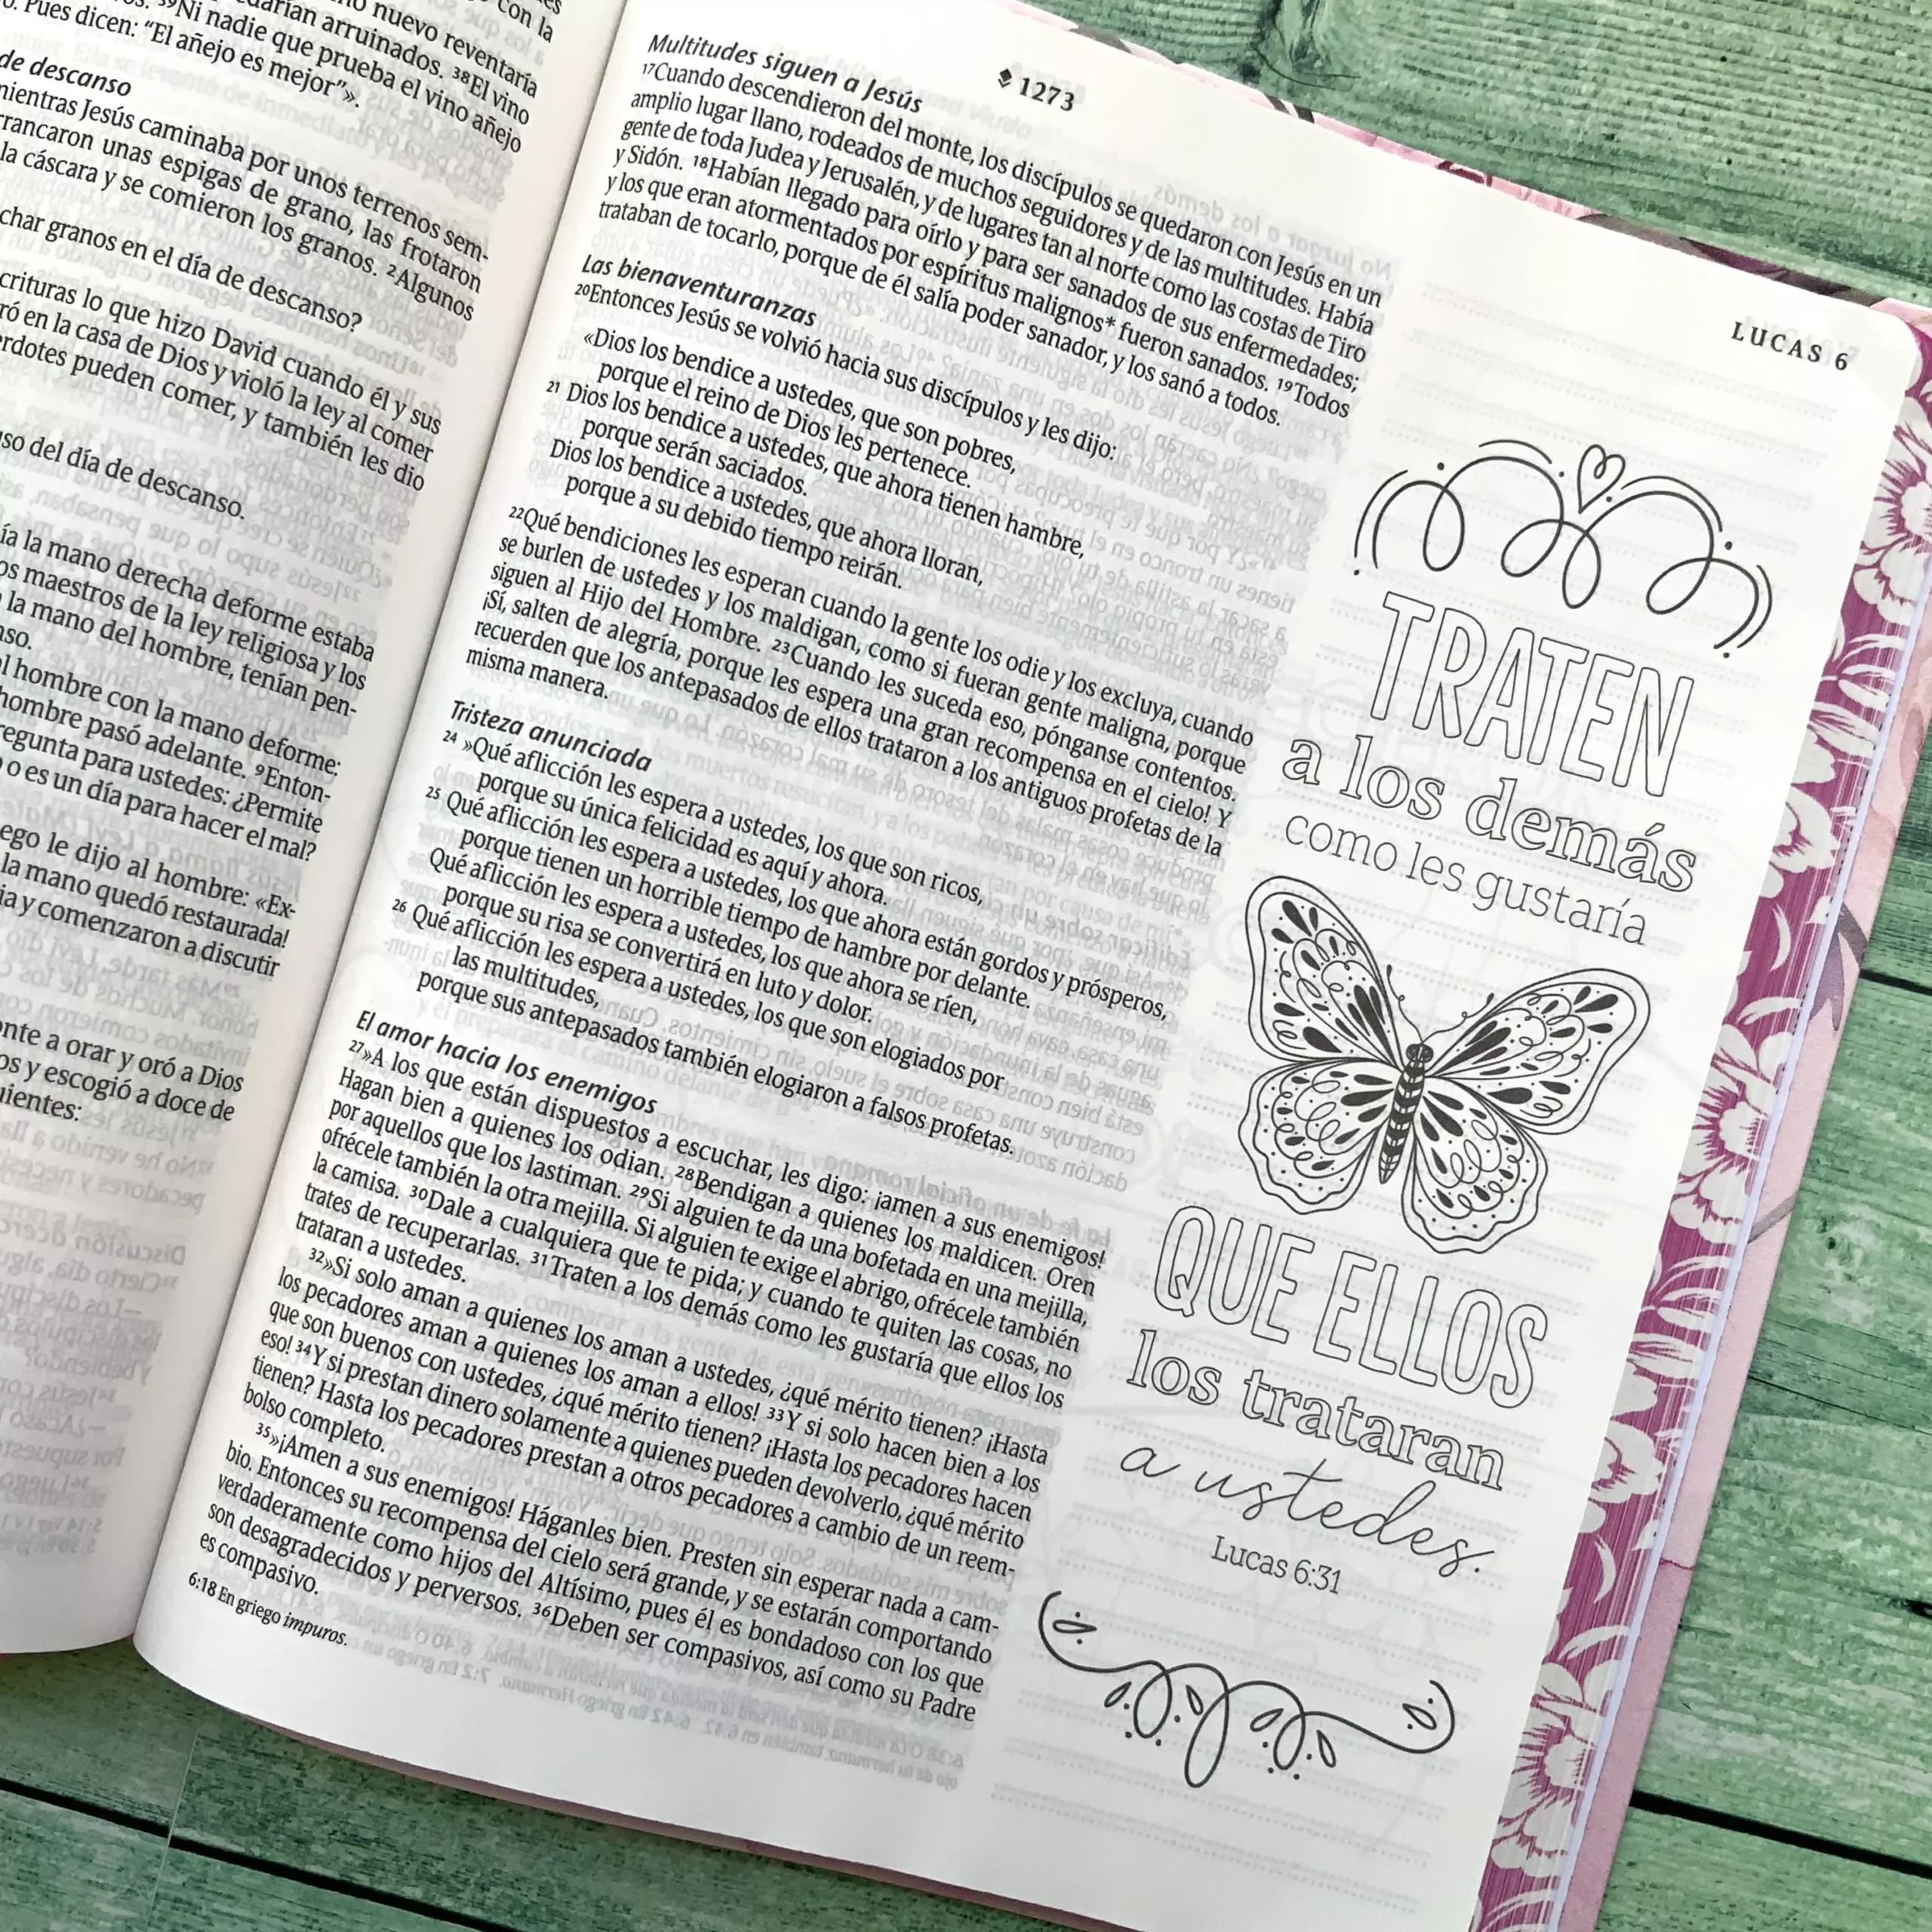 con la
no nuevo reventaría
quedarían arruinados. ³⁸El vino
³⁹Ni nadie que prueba el vino añejo
Pues dicen: “El añejo es mejor”».
de descanso
mientras Jesús caminaba por unos terrenos sem-
rrancaron unas espigas de grano, las frotaron
la cáscara y se comieron los granos. ²Algunos
char granos en el día de descanso?
crituras lo que hizo David cuando él y sus
ró en la casa de Dios y violó la ley al comer
erdotes pueden comer, y también les dio
so del día de descanso.
ía la mano derecha deforme estaba
os maestros de la ley religiosa y los
la mano del hombre, tenían pen-
nso.
l hombre con la mano deforme:
hombre pasó adelante. ⁹Enton-
regunta para ustedes: ¿Permite
o es un día para hacer el mal?
ego le dijo al hombre: «Ex-
la mano quedó restaurada!
ia y comenzaron a discutir
onte a orar y oró a Dios
os y escogió a doce de
uientes:
1273
LUCAS 6
Multitudes siguen a Jesús
¹⁷Cuando descendieron del monte, los discípulos se quedaron con Jesús en un
amplio lugar llano, rodeados de muchos seguidores y de las multitudes. Había
gente de toda Judea y Jerusalén, y de lugares tan al norte como las costas de Tiro
y Sidón. ¹⁸Habían llegado para oírlo y para ser sanados de sus enfermedades;
y los que eran atormentados por espíritus malignos* fueron sanados. ¹⁹Todos
trataban de tocarlo, porque de él salía poder sanador, y los sanó a todos.
Las bienaventuranzas
²⁰Entonces Jesús se volvió hacia sus discípulos y les dijo:
«Dios los bendice a ustedes, que son pobres,
porque el reino de Dios les pertenece.
²¹ Dios los bendice a ustedes, que ahora tienen hambre,
porque serán saciados.
Dios los bendice a ustedes, que ahora lloran,
porque a su debido tiempo reirán.
²²Qué bendiciones les esperan cuando la gente los odie y los excluya, cuando
se burlen de ustedes y los maldigan, como si fueran gente maligna, porque
siguen al Hijo del Hombre. ²³Cuando les suceda eso, pónganse contentos.
¡Sí, salten de alegría, porque les espera una gran recompensa en el cielo! Y
recuerden que los antepasados de ellos trataron a los antiguos profetas de la
misma manera.
Tristeza anunciada
²⁴ »Qué aflicción les espera a ustedes, los que son ricos,
porque su única felicidad es aquí y ahora.
²⁵ Qué aflicción les espera a ustedes, los que ahora están gordos y prósperos,
porque tienen un horrible tiempo de hambre por delante.
Qué aflicción les espera a ustedes, los que ahora se ríen,
porque su risa se convertirá en luto y dolor.
²⁶ Qué aflicción les espera a ustedes, los que son elogiados por
las multitudes,
porque sus antepasados también elogiaron a falsos profetas.
El amor hacia los enemigos
²⁷»A los que están dispuestos a escuchar, les digo: ¡amen a sus enemigos!
Hagan bien a quienes los odian. ²⁸Bendigan a quienes los maldicen. Oren
por aquellos que los lastiman. ²⁹Si alguien te da una bofetada en una mejilla,
ofrécele también la otra mejilla. Si alguien te exige el abrigo, ofrécele también
la camisa. ³⁰Dale a cualquiera que te pida; y cuando te quiten las cosas, no
trates de recuperarlas. ³¹Traten a los demás como les gustaría que ellos los
trataran a ustedes.
³²»Si solo aman a quienes los aman a ustedes, ¿qué mérito tienen? ¡Hasta
los pecadores aman a quienes los aman a ellos! ³³Y si solo hacen bien a los
que son buenos con ustedes, ¿qué mérito tienen? ¡Hasta los pecadores hacen
eso! ³⁴Y si prestan dinero solamente a quienes pueden devolverlo, ¿qué mérito
tienen? Hasta los pecadores prestan a otros pecadores a cambio de un reem-
bolso completo.
³⁵»¡Amen a sus enemigos! Háganles bien. Presten sin esperar nada a cam-
bio. Entonces su recompensa del cielo será grande, y se estarán comportando
verdaderamente como hijos del Altísimo, pues él es bondadoso con los que
son desagradecidos y perversos. ³⁶Deben ser compasivos, así como su Padre
es compasivo.
6:18 En griego impuros.
TRATEN
a los demás
como les gustaría
QUE ELLOS
los trataran
a ustedes.
Lucas 6:31